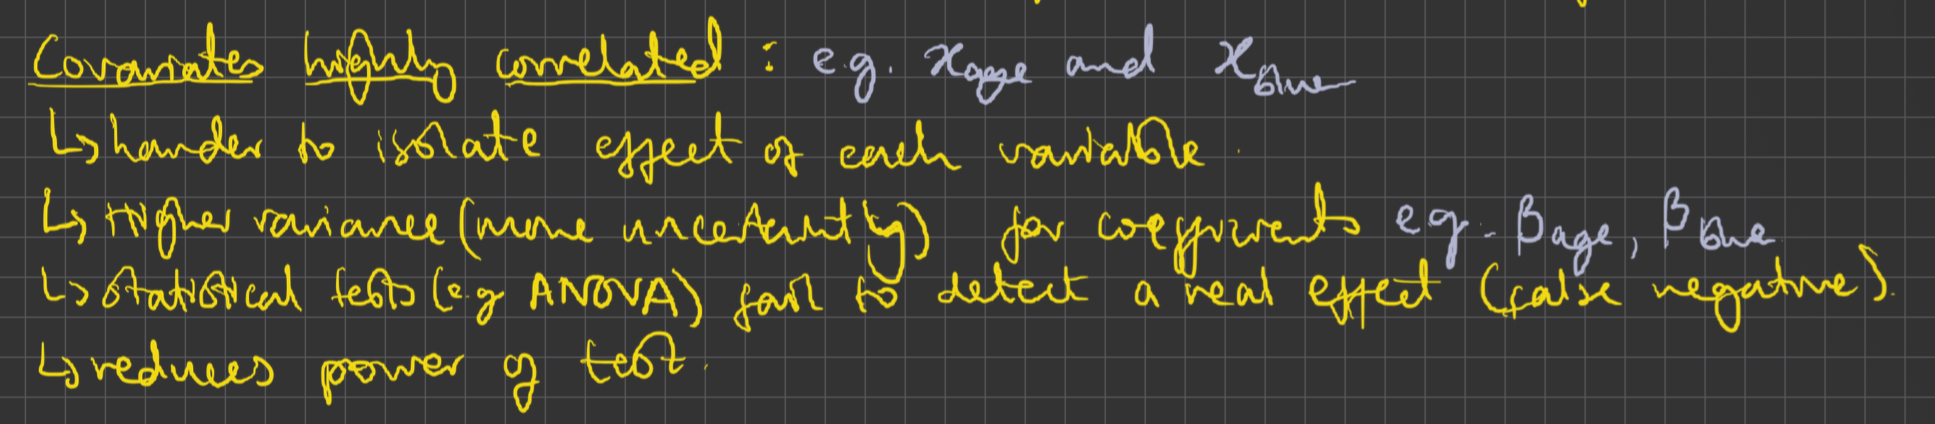 Covariates highly correlated : e.g. x_age and x_Blue
↳ harder to isolate effect of each variable.
↳ Higher variance (more uncertainty) for coefficients eg. β_age, β_Blue
↳ statistical tests (e.g ANOVA) fail to detect a real effect (false negative).
↳ reduces power of test.